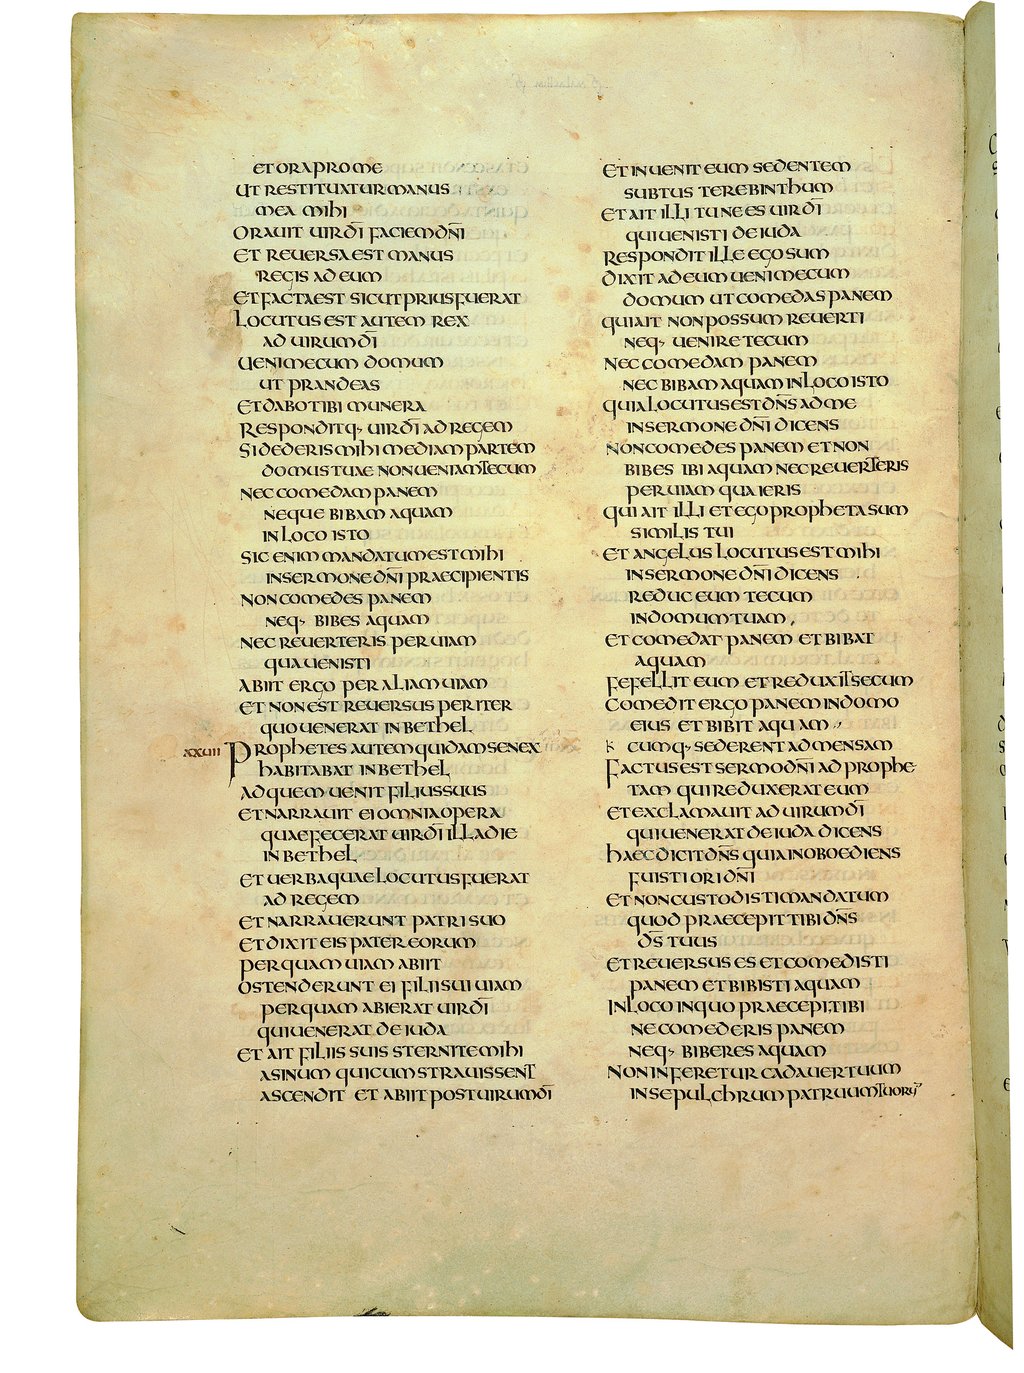 ET ORA PRO ME
UT RESTITUATUR MANUS
MEA MIHI
ORAUIT UIR DĪ FACIEM DN̄I
ET REUERSA EST MANUS
REGIS AD EUM
ET FACTA EST SICUT PRIUS FUERAT
LOCUTUS EST AUTEM REX
AD UIRUM DĪ
UENI MECUM DOMUM
UT PRANDEAS
ET DABO TIBI MUNERA
RESPONDITQ· UIR DĪ AD REGEM
SI DEDERIS MIHI MEDIAM PARTEM
DOMUS TUAE NON UENIAM TECUM
NEC COMEDAM PANEM
NEQUE BIBAM AQUAM
IN LOCO ISTO
SIC ENIM MANDATUM EST MIHI
IN SERMONE DN̄I PRAECIPIENTIS
NON COMEDES PANEM
NEQ· BIBES AQUAM
NEC REUERTERIS PER UIAM
QUA UENISTI
ABIIT ERGO PER ALIAM UIAM
ET NON EST REUERSUS PER ITER
QUO UENERAT IN BETHEL
XXUIII PROPHETES AUTEM QUIDAM SENEX
HABITABAT IN BETHEL
AD QUEM UENIT FILIUS SUUS
ET NARRAUIT EI OMNIA OPERA
QUAE FECERAT UIR DĪ ILLA DIE
IN BETHEL
ET UERBA QUAE LOCUTUS FUERAT
AD REGEM
ET NARRAUERUNT PATRI SUO
ET DIXIT EIS PATER EORUM
PER QUAM UIAM ABIIT
OSTENDERUNT EI FILII SUI UIAM
PER QUAM ABIERAT UIR DĪ
QUI UENERAT DE IUDA
ET AIT FILIIS SUIS STERNITE MIHI
ASINUM QUI CUM STRAUISSENT
ASCENDIT ET ABIIT POST UIRUM DĪ
ET INUENIT EUM SEDENTEM
SUBTUS TEREBINTHUM
ET AIT ILLI TU NE ES UIR DĪ
QUI UENISTI DE IUDA
RESPONDIT ILLE EGO SUM
DIXIT AD EUM UENI MECUM
DOMUM UT COMEDAS PANEM
QUI AIT NON POSSUM REUERTI
NEQ· UENIRE TECUM
NEC COMEDAM PANEM
NEC BIBAM AQUAM IN LOCO ISTO
QUIA LOCUTUS EST DN̄S AD ME
IN SERMONE DN̄I DICENS
NON COMEDES PANEM ET NON
BIBES IBI AQUAM NEC REUERTERIS
PER UIAM QUA IERIS
QUI AIT ILLI ET EGO PROPHETA SUM
SIMILIS TUI
ET ANGELUS LOCUTUS EST MIHI
IN SERMONE DN̄I DICENS
REDUC EUM TECUM
IN DOMUM TUAM,
ET COMEDAT PANEM ET BIBAT
AQUAM
FEFELLIT EUM ET REDUXIT SECUM
COMEDIT ERGO PANEM IN DOMO
EIUS ET BIBIT AQUAM
CUMQ· SEDERENT AD MENSAM
FACTUS EST SERMO DN̄I AD PROPHE
TAM QUI REDUXERAT EUM
ET EXCLAMAUIT AD UIRUM DĪ
QUI UENERAT DE IUDA DICENS
HAEC DICIT DN̄S QUIA INOBOEDIENS
FUISTI ORI DN̄I
ET NON CUSTODISTI MANDATUM
QUOD PRAECEPIT TIBI DN̄S
DS̄ TUUS
ET REUERSUS ES ET COMEDISTI
PANEM ET BIBISTI AQUAM
IN LOCO IN QUO PRAECEPI TIBI
NE COMEDERIS PANEM
NEQ· BIBERES AQUAM
NON INFERETUR CADAUER TUUM
IN SEPULCHRUM PATRUUM TUORU̅